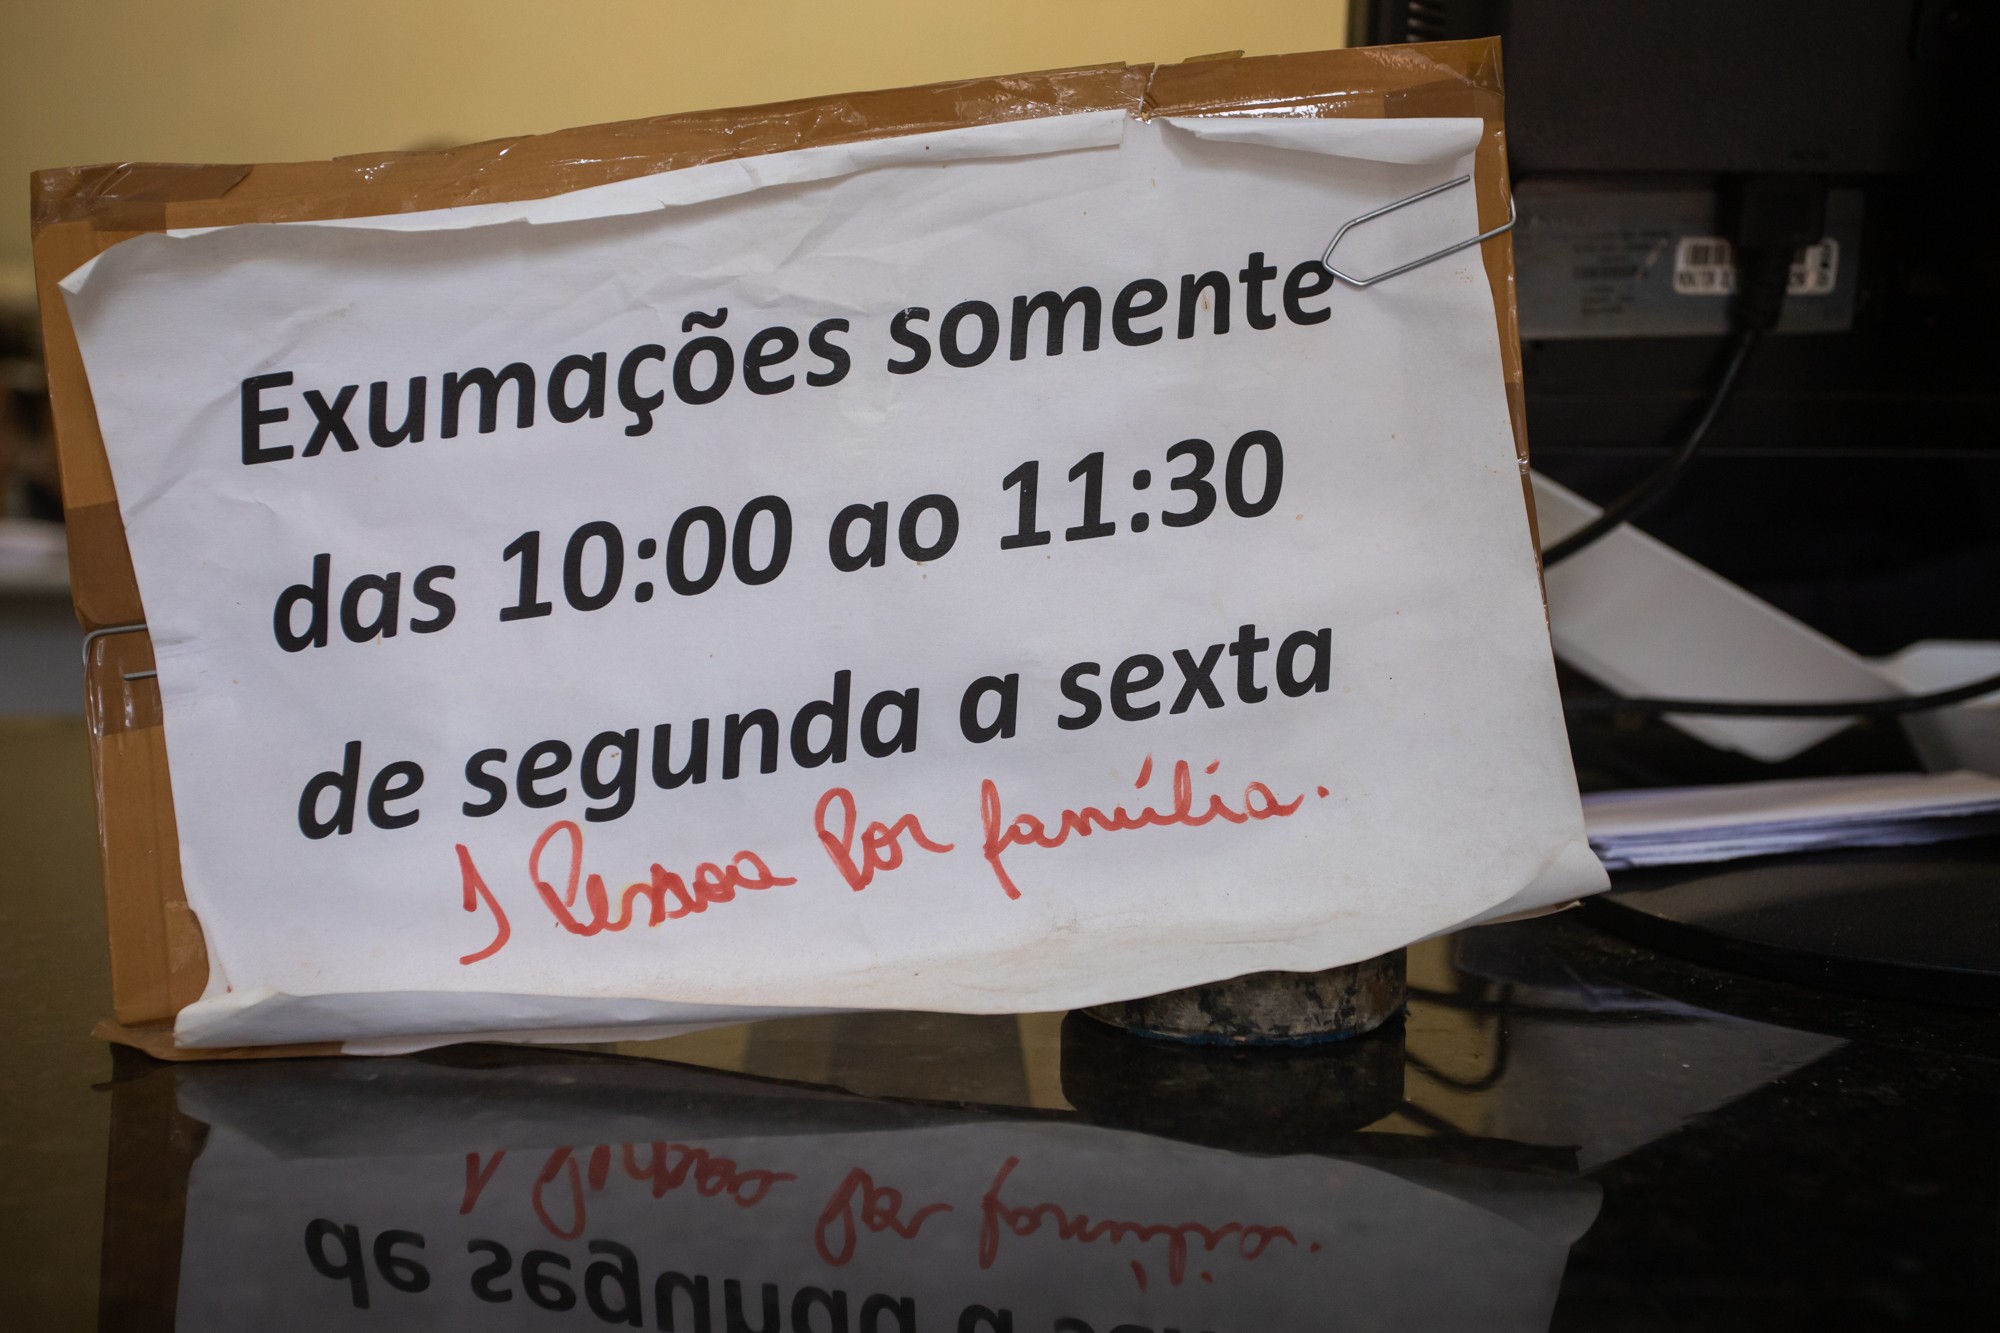 Exumações somente
das 10:00 ao 11:30
de segunda a sexta
1 Pessoa Por família.